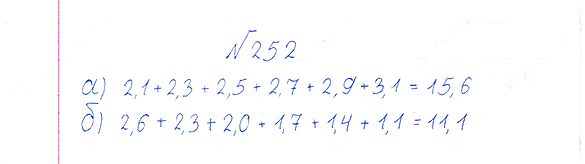 №252
а) 2,1+2,3+2,5+2,7+2,9+3,1=15,6
б) 2,6+2,3+2,0+1,7+1,4+1,1=11,1